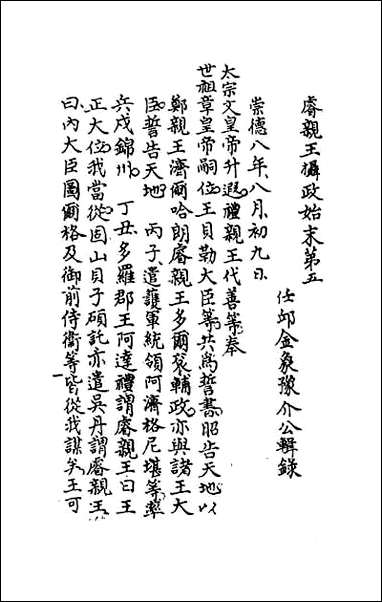 睿親王攝政始末第五
任邱金象豫介公輯錄
崇德八年八月初九日
太宗文皇帝升遐禮親王代善等奉
世祖章皇帝嗣位王貝勒大臣等共為誓書昭告天地以
鄭親王濟爾哈朗睿親王多爾袞輔政亦與諸王大
臣誓告天地 丙子遣護軍統領阿濟格尼堪等率
兵戍錦州 丁丑多羅郡王阿達禮謂睿親王曰王
正大位我當從固山貝子碩託亦遣吳丹謂睿親王
曰內大臣圖爾格及御前侍衛等皆從我謀矣王可